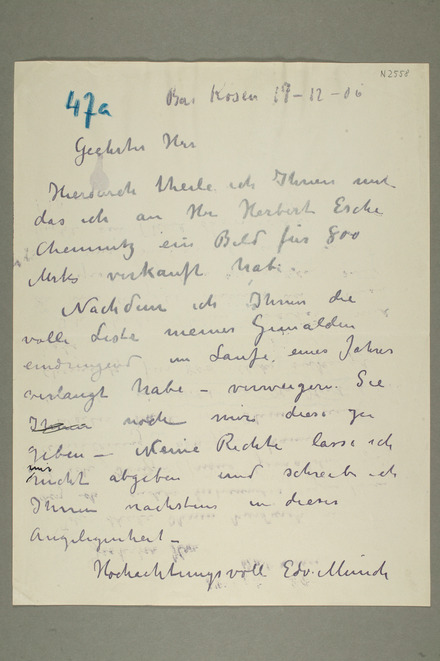 N2558
47a
Bad Kösen 17-12-06
Geehrter Herr
Hierdurch theile ich Ihnen mit
das ich an Hr Herbert Esche
Chemnitz ein Bild für 800
Mrks verkauft habe.
Nachdem ich Ihnen die
volle Liste meines Gemälden
eindringend im Laufe eines Jahres
verlangt habe – verweigern Sie
Ihnen noch mir diese zu
geben – Meine Rechte lasse ich
mir
nicht abgeben und schreibe ich
Ihnen nächstens in dieser
Angelegenheit –
Hochachtungsvoll Edv. Munch